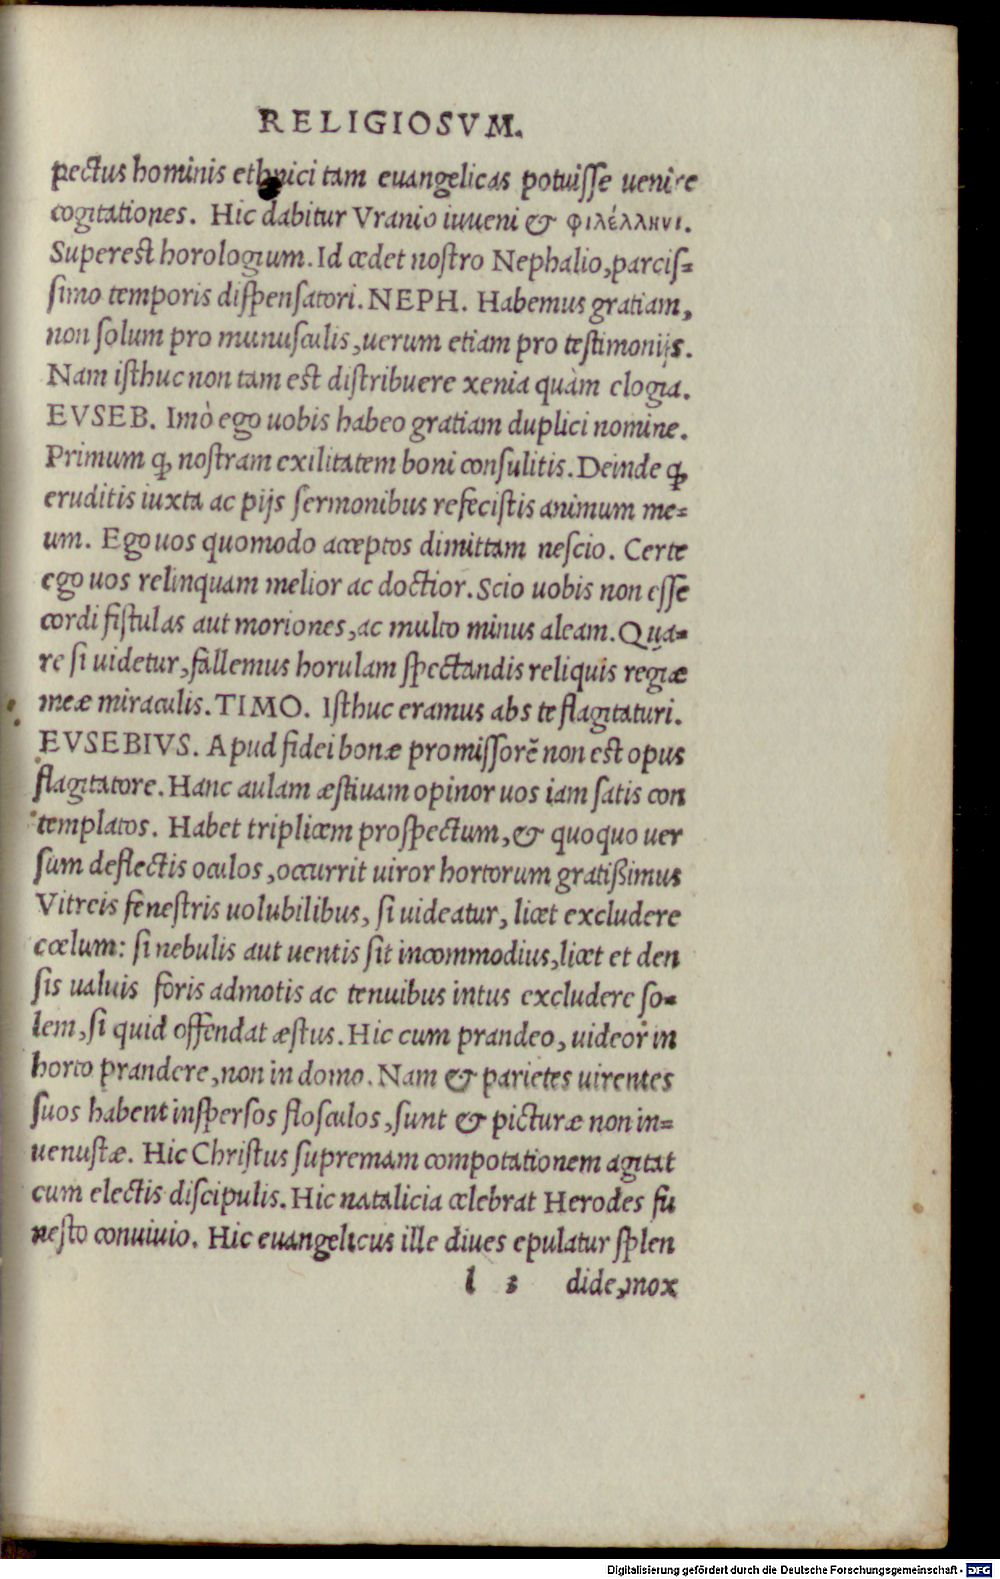 RELIGIOSVM.
pectus hominis ethnici tam euangelicas potuisse uenire
cogitationes. Hic dabitur Vranio iuueni & φιλέλληνι.
Superest horologium. Id cedet nostro Nephalio, parcis=
simo temporis dispensatori. NEPH. Habemus gratiam,
non solum pro munusculis, uerum etiam pro testimonijs.
Nam isthuc non tam est distribuere xenia quàm elogia.
EVSEB. Imò ego uobis habeo gratiam duplici nomine.
Primum ꝙ nostram exilitatem boni consulitis. Deinde ꝙ
eruditis iuxta ac pijs sermonibus refecistis animum me=
um. Ego uos quomodo acceptos dimittam nescio. Certe
ego uos relinquam melior ac doctior. Scio uobis non esse
cordi fistulas aut moriones, ac multo minus aleam. Qua=
re si uidetur, fallemus horulam spectandis reliquis regiæ
meæ miraculis. TIMO. Isthuc eramus abs te flagitaturi.
EVSEBIVS. Apud fidei bonæ promissorẽ non est opus
flagitatore. Hanc aulam æstiuam opinor uos iam satis con
templatos. Habet triplicem prospectum, & quoquo uer
sum deflectis oculos, occurrit uiror hortorum gratißimus
Vitreis fenestris uolubilibus, si uideatur, licet excludere
cœlum: si nebulis aut uentis sit incommodius, licet et den
sis ualuis foris admotis ac tenuibus intus excludere so=
lem, si quid offendat æstus. Hic cum prandeo, uideor in
horto prandere, non in domo. Nam & parietes uirentes
suos habent inspersos flosculos, sunt & picturæ non in=
uenustæ. Hic Christus supremam compotationem agitat
cum electis discipulis. Hic natalicia celebrat Herodes fu
nesto conuiuio. Hic euangelicus ille diues epulatur splen
l 3 dide, mox
Digitalisierung gefördert durch die Deutsche Forschungsgemeinschaft - DFG